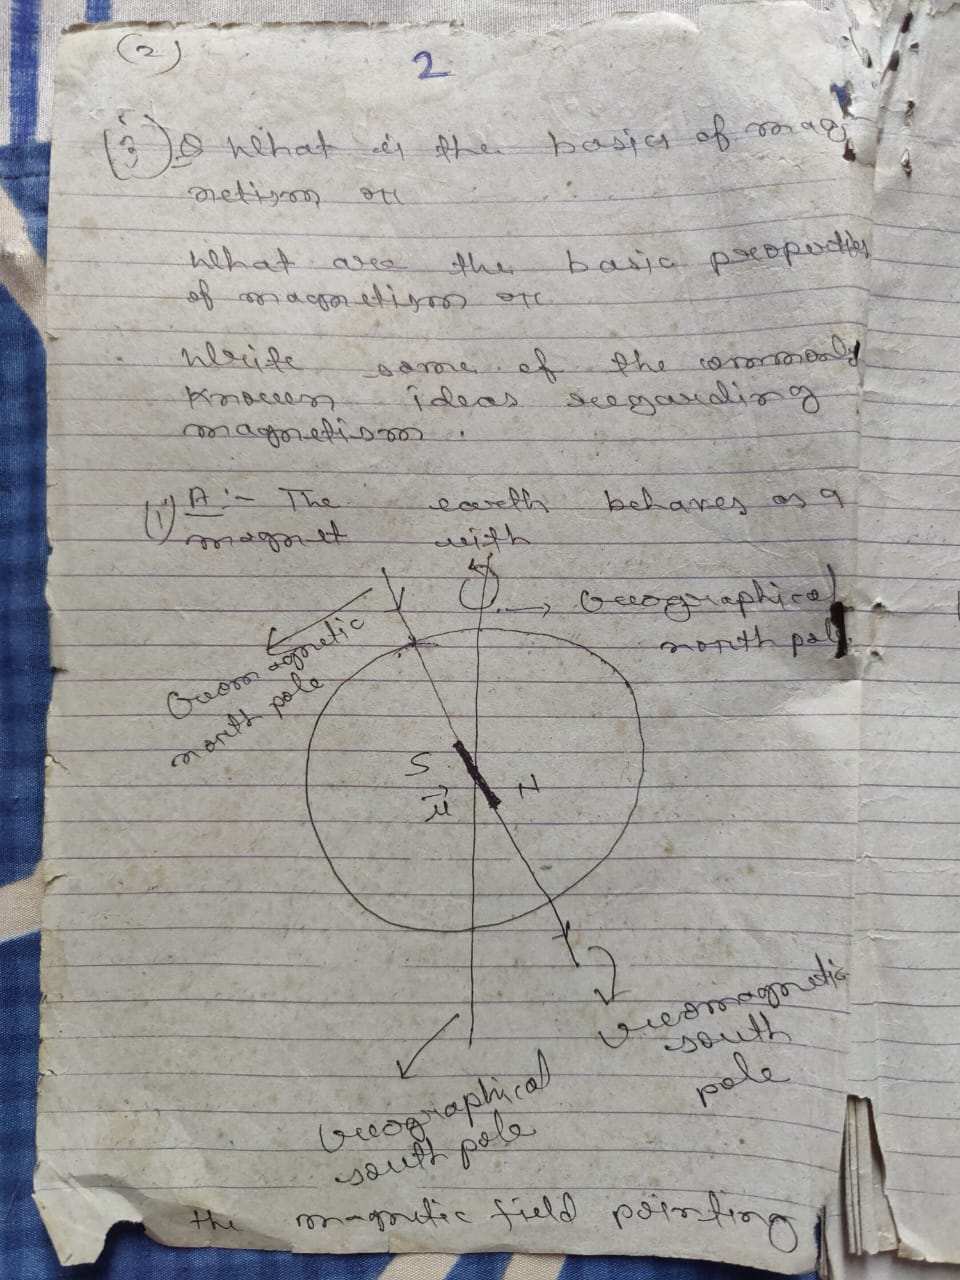 (2)
2
(3) Q What is the basics of mag
netism or
What are the basic properties
of magnetism or
Write some of the commonly
known ideas regarding
magnetism.
(i) A:- The earth behaves as a
magnet with
Geographical
north pole
Geomagnetic
north pole
S
N
μ⃗
Geomagnetic
south
pole
Geographical
south pole
the magnetic field pointing